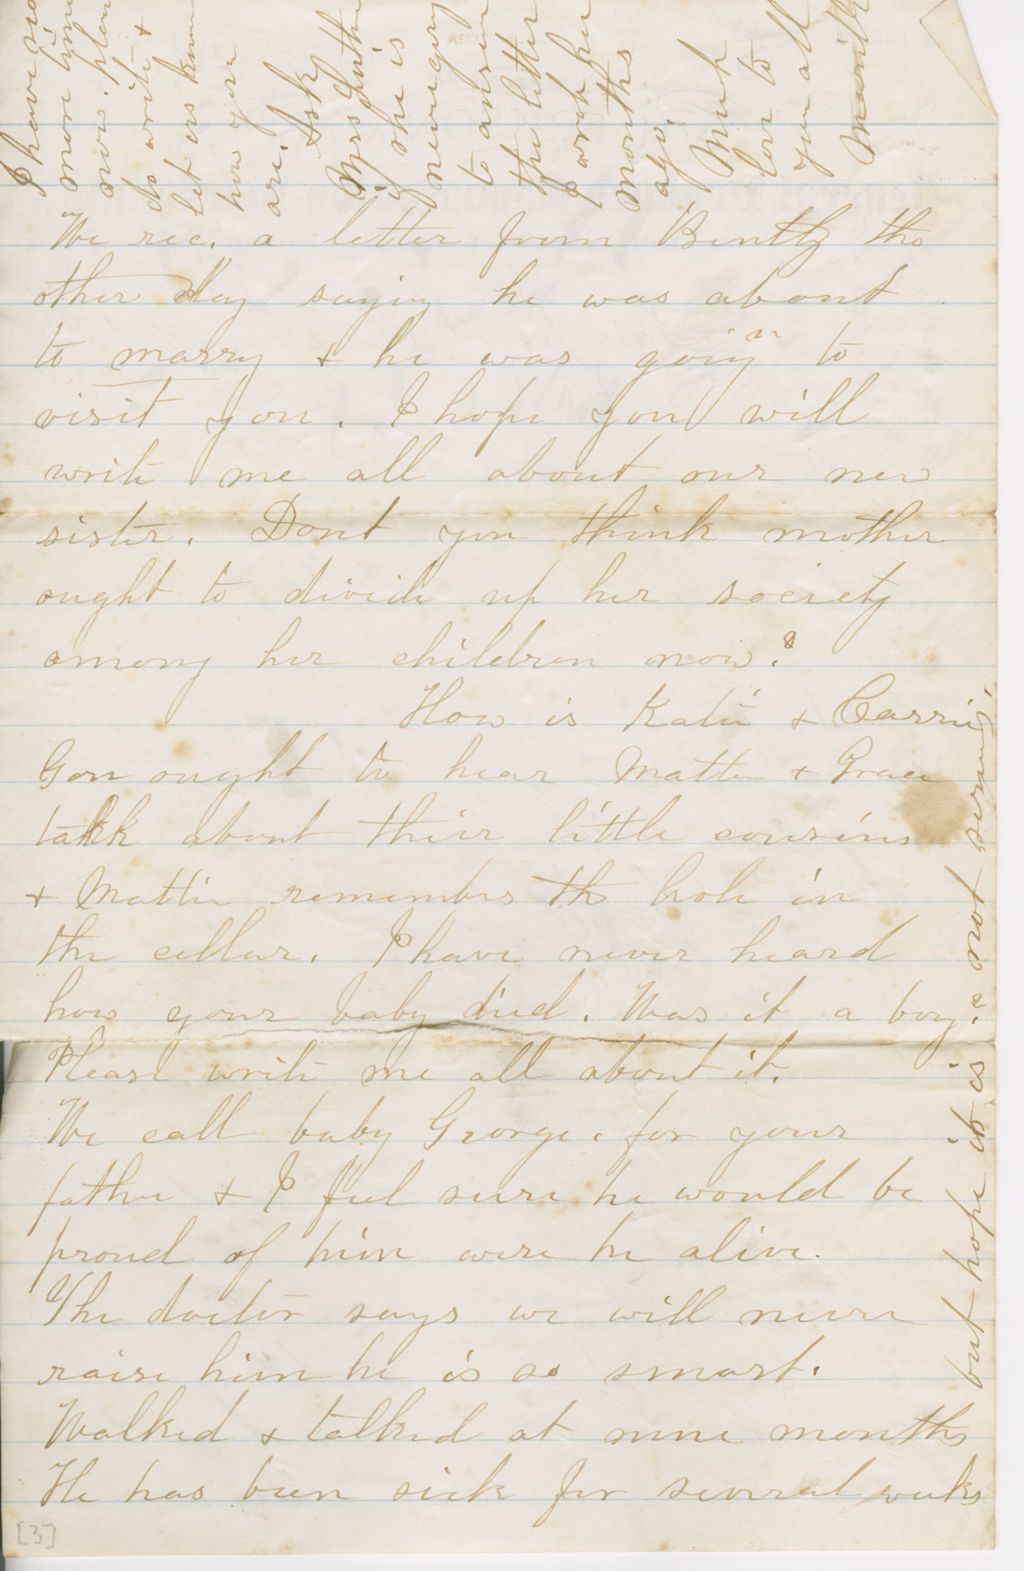 We rec. a letter from Bently the
other day saying he was about
to marry & he was going to
visit you. I hope you will
write me all about our new
sister. Dont you think mother
ought to divide up her society
among her children now?
How is Katie & Carrie
You ought to hear Mattie & Grace
talk about their little cousins
& Mattie remembers the hole in
the cellar. I have never heard
how your baby died. Was it a boy?
Please write me all about it.
We call baby George, for your
father & I feel sure he would be
proud of him were he alive.
The doctor says we will never
raise him he is so smart.
Walked & talked at nine months
He has been sick for several weeks
but hope it is not serious
I have no
more time
now. please
do write &
let us know
how you
are. Ask
Mrs
if she is
never going
to answer
the letter
I wrote her
months
ago.
Much
love to
you all
[3]